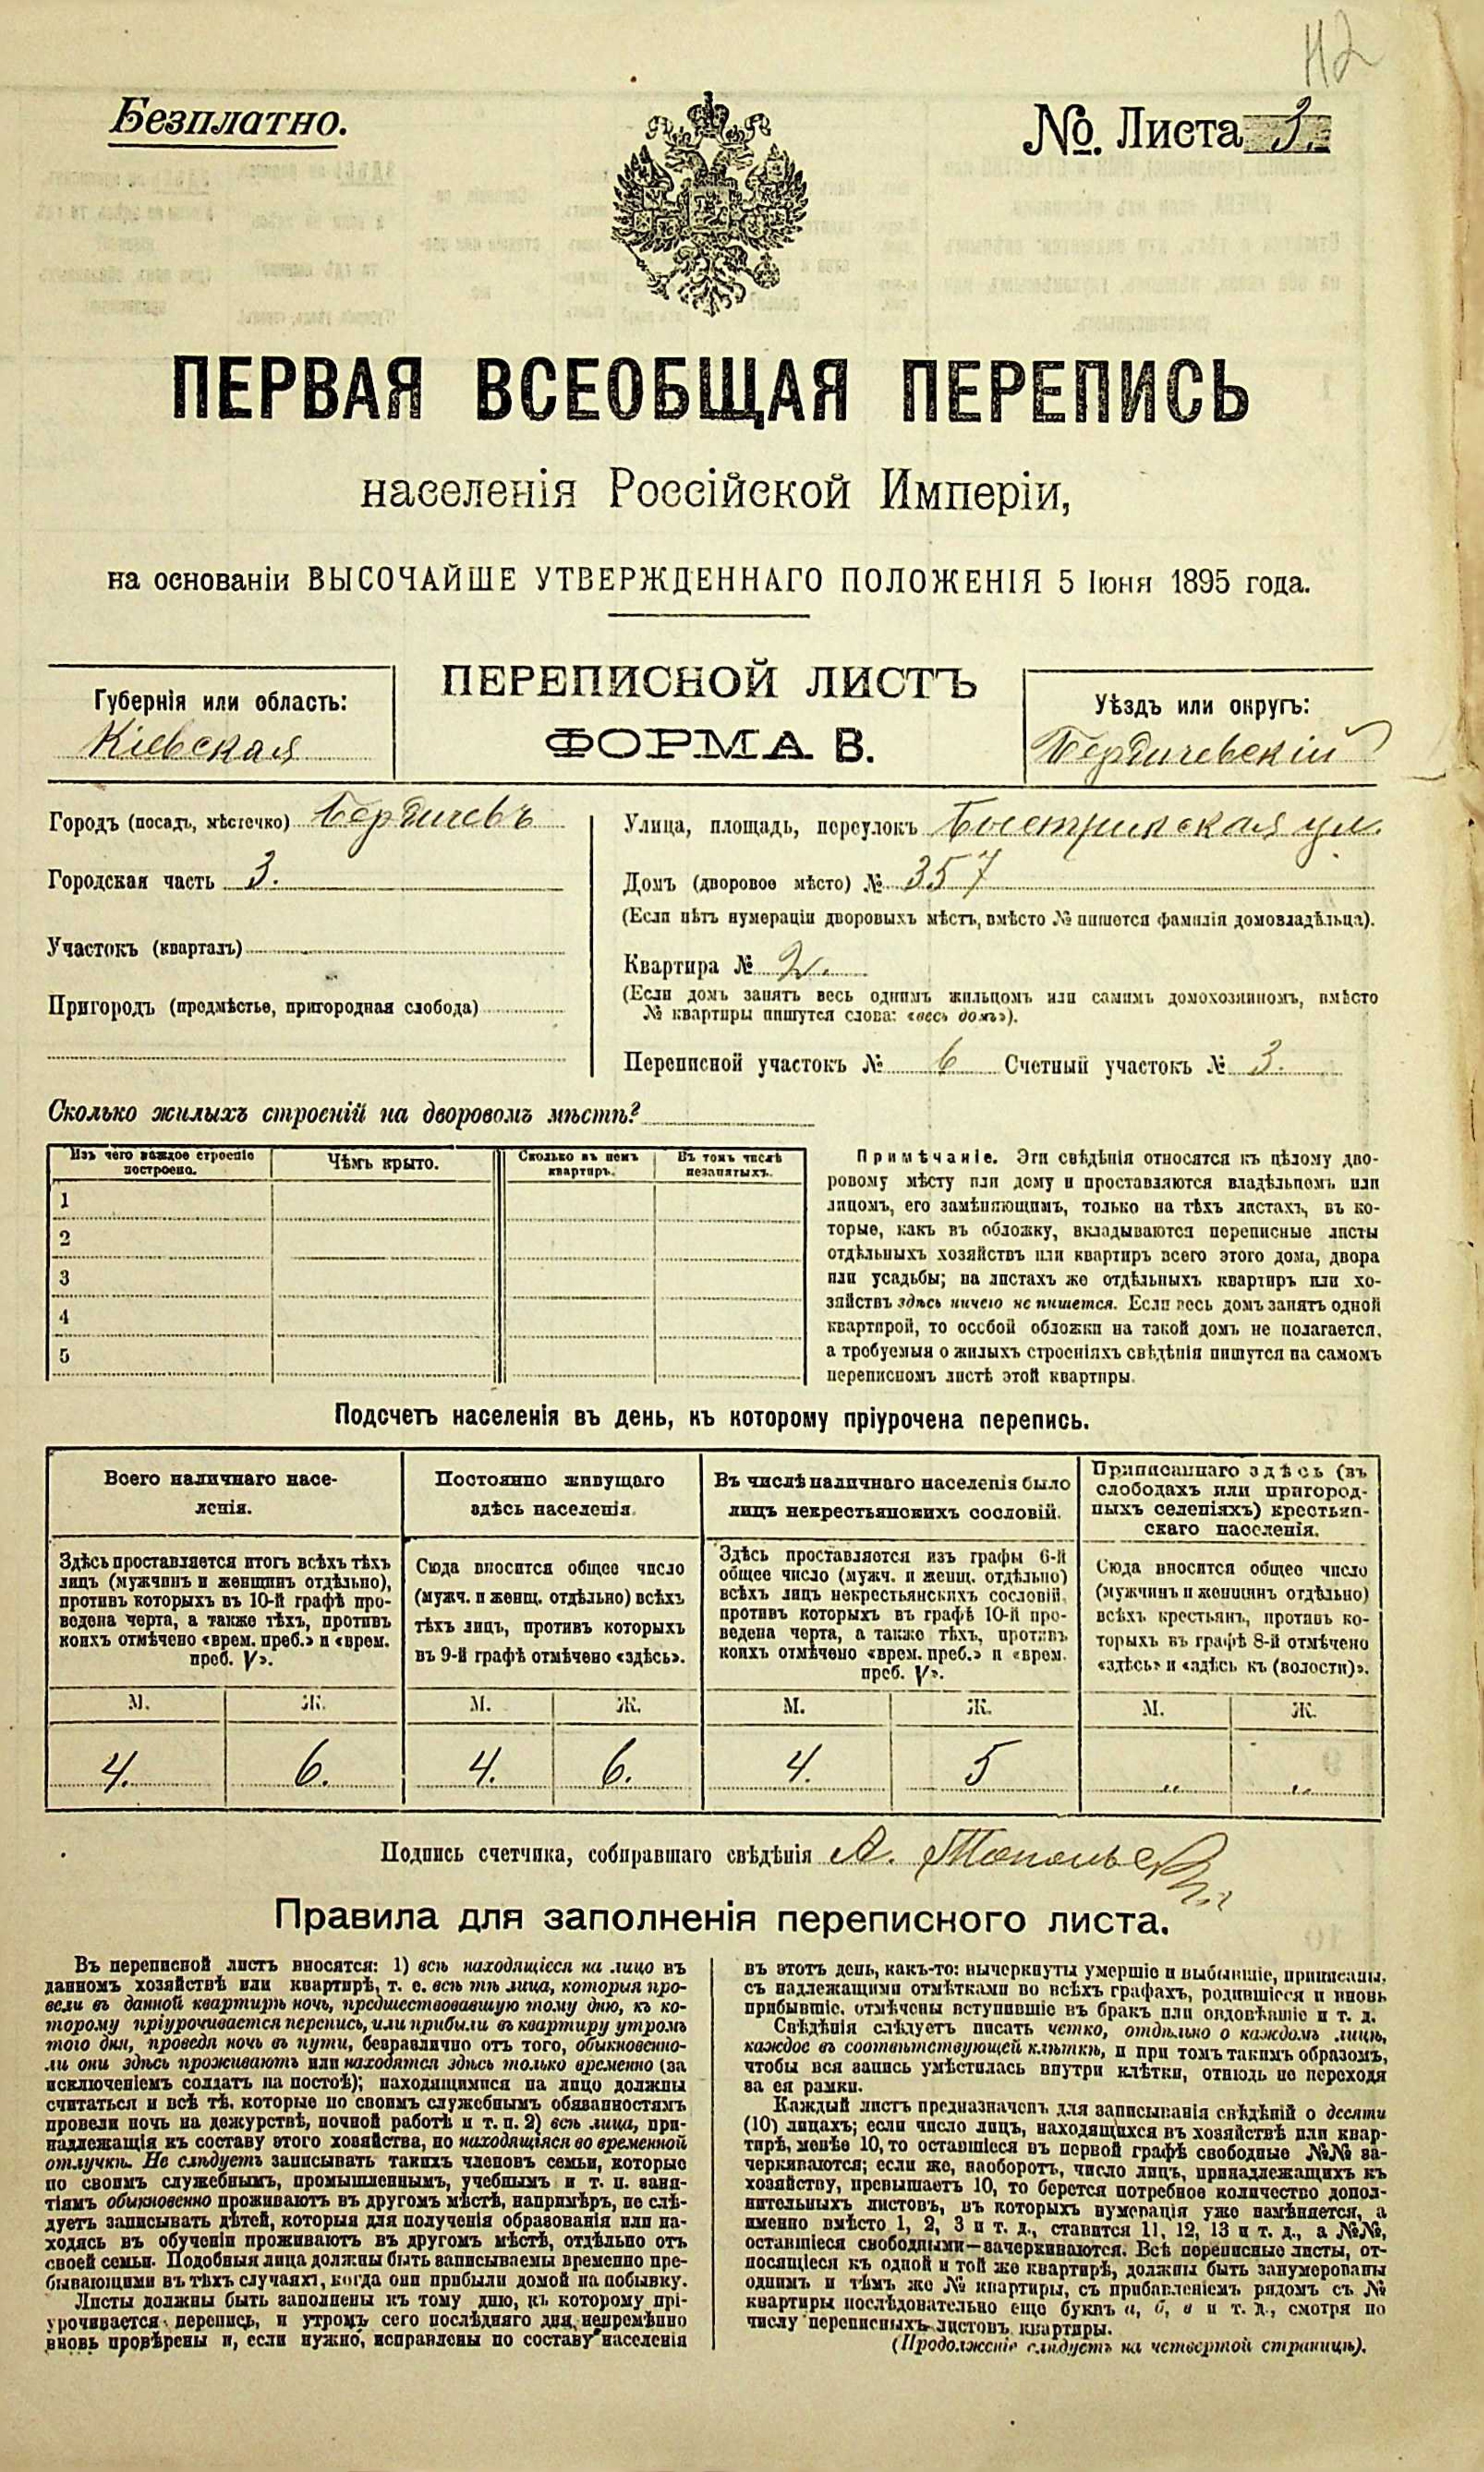 112
Безплатно.
№. Листа 3.
ПЕРВАЯ ВСЕОБЩАЯ ПЕРЕПИСЬ
населенія Россійской Имперіи,
на основаніи ВЫСОЧАЙШЕ УТВЕРЖДЕННАГО ПОЛОЖЕНІЯ 5 Іюня 1895 года.
Губернія или область:
Кіевская
ПЕРЕПИСНОЙ ЛИСТЪ
ФОРМА В.
Уѣздъ или округъ:
Бердичевскій
Городъ (посадъ, мѣстечко) Бердичевъ
Городская часть 3.
Участокъ (кварталъ)
Пригородъ (предмѣстье, пригородная слобода)
Улица, площадь, переулокъ Быстрикская ул.
Домъ (дворовое мѣсто) № 357
(Если нѣтъ нумераціи дворовыхъ мѣстъ, вмѣсто № пишется фамилія домовладѣльца).
Квартира № 2.
(Если домъ занятъ весь однимъ жильцомъ или самимъ домохозяиномъ, вмѣсто
№ квартиры пишутся слова: «весь домъ»).
Переписной участокъ № 6 Счетный участокъ № 3.
Сколько жилыхъ строеній на дворовомъ мѣстѣ?
Изъ чего каждое строеніе
построено.
Чѣмъ крыто.
Сколько въ немъ
квартиръ.
Въ томъ числѣ
незанятыхъ.
1
2
3
4
5
Примѣчаніе. Эти свѣдѣнія относятся къ цѣлому дво-
ровому мѣсту или дому и проставляются владѣльцемъ или
лицомъ, его замѣняющимъ, только на тѣхъ листахъ, въ ко-
торые, какъ въ обложку, вкладываются переписные листы
отдѣльныхъ хозяйствъ или квартиръ всего этого дома, двора
или усадьбы; на листахъ же отдѣльныхъ квартиръ или хо-
зяйствъ здѣсь ничего не пишется. Если весь домъ занятъ одной
квартирой, то особой обложки на такой домъ не полагается,
а требуемыя о жилыхъ строеніяхъ свѣдѣнія пишутся на самомъ
переписномъ листѣ этой квартиры.
Подсчетъ населенія въ день, къ которому пріурочена перепись.
Всего наличнаго насе-
ленія.
Здѣсь проставляется итогъ всѣхъ тѣхъ
лицъ (мужчинъ и женщинъ отдѣльно),
противъ которыхъ въ 10-й графѣ про-
ведена черта, а также тѣхъ, противъ
коихъ отмѣчено «врем. преб.» и «врем.
преб. V».
Постоянно живущаго
здѣсь населенія.
Сюда вносится общее число
(мужч. и женщ. отдѣльно) всѣхъ
тѣхъ лицъ, противъ которыхъ
въ 9-й графѣ отмѣчено «здѣсь».
Въ числѣ наличнаго населенія было
лицъ некрестьянскихъ сословій.
Здѣсь проставляется изъ графы 6-й
общее число (мужч. и женщ. отдѣльно)
всѣхъ лицъ некрестьянскихъ сословій,
противъ которыхъ въ графѣ 10-й про-
ведена черта, а также тѣхъ, противъ
коихъ отмѣчено «врем. преб.» и «врем.
преб. V».
Приписаннаго здѣсь (въ
слободахъ или пригород-
ныхъ селеніяхъ) крестьян-
скаго населенія.
Сюда вносится общее число
(мужчинъ и женщинъ отдѣльно)
всѣхъ крестьянъ, противъ ко-
торыхъ въ графѣ 8-й отмѣчено
«здѣсь» и «здѣсь къ (волости)».
М. Ж. М. Ж. М. Ж. М. Ж.
4. 6. 4. 6. 4. 5 „ „
Подпись счетчика, собиравшаго свѣдѣнія А.
Правила для заполненія переписного листа.
Въ переписной листъ вносятся: 1) всѣ находящіеся на лицо въ
данномъ хозяйствѣ или квартирѣ, т. е. всѣ тѣ лица, которыя про-
вели въ данной квартирѣ ночь, предшествовавшую тому дню, къ ко-
торому пріурочивается перепись, или прибыли въ квартиру утромъ
того дня, проведя ночь въ пути, безразлично отъ того, обыкновенно-
ли они здѣсь проживаютъ или находятся здѣсь только временно (за
исключеніемъ солдатъ на постоѣ); находящимися на лицо должны
считаться и всѣ тѣ, которые по своимъ служебнымъ обязанностямъ
провели ночь на дежурствѣ, ночной работѣ и т. п. 2) всѣ лица, при-
надлежащія къ составу этого хозяйства, но находящіяся во временной
отлучкѣ. Не слѣдуетъ записывать такихъ членовъ семьи, которые
по своимъ служебнымъ, промышленнымъ, учебнымъ и т. п. заня-
тіямъ обыкновенно проживаютъ въ другомъ мѣстѣ, напримѣръ, не слѣ-
дуетъ записывать дѣтей, которыя для полученія образованія или на-
ходясь въ обученіи проживаютъ въ другомъ мѣстѣ, отдѣльно отъ
своей семьи. Подобныя лица должны быть записываемы временно пре-
бывающими въ тѣхъ случаяхъ, когда они прибыли домой на побывку.
Листы должны быть заполнены къ тому дню, къ которому прі-
урочивается перепись, и утромъ сего послѣдняго дня непремѣнно
вновь провѣрены и, если нужно, исправлены по составу населенія
въ этотъ день, какъ-то: вычеркнуты умершіе и выбывшіе, приписаны,
съ надлежащими отмѣтками во всѣхъ графахъ, родившіеся и вновь
прибывшіе, отмѣчены вступившіе въ бракъ или овдовѣвшіе и т. д.
Свѣдѣнія слѣдуетъ писать четко, отдѣльно о каждомъ лицѣ,
каждое въ соотвѣтствующей клѣткѣ, и при томъ такимъ образомъ,
чтобы вся запись умѣстилась внутри клѣтки, отнюдь не переходя
за ея рамки.
Каждый листъ предназначенъ для записыванія свѣдѣній о десяти
(10) лицахъ; если число лицъ, находящихся въ хозяйствѣ или квар-
тирѣ, менѣе 10, то оставшіеся въ первой графѣ свободные №№ за-
черкиваются; если же, наоборотъ, число лицъ, принадлежащихъ къ
хозяйству, превышаетъ 10, то берется потребное количество допол-
нительныхъ листовъ, въ которыхъ нумерація уже измѣняется, а
именно вмѣсто 1, 2, 3 и т. д., ставится 11, 12, 13 и т. д., а №№,
оставшіеся свободными—зачеркиваются. Всѣ переписные листы, от-
носящіеся къ одной и той же квартирѣ, должны быть занумерованы
однимъ и тѣмъ же № квартиры, съ прибавленіемъ рядомъ съ №
квартиры послѣдовательно еще буквъ а, б, в и т. д., смотря по
числу переписныхъ листовъ квартиры.
(Продолженіе слѣдуетъ на четвертой страницѣ).